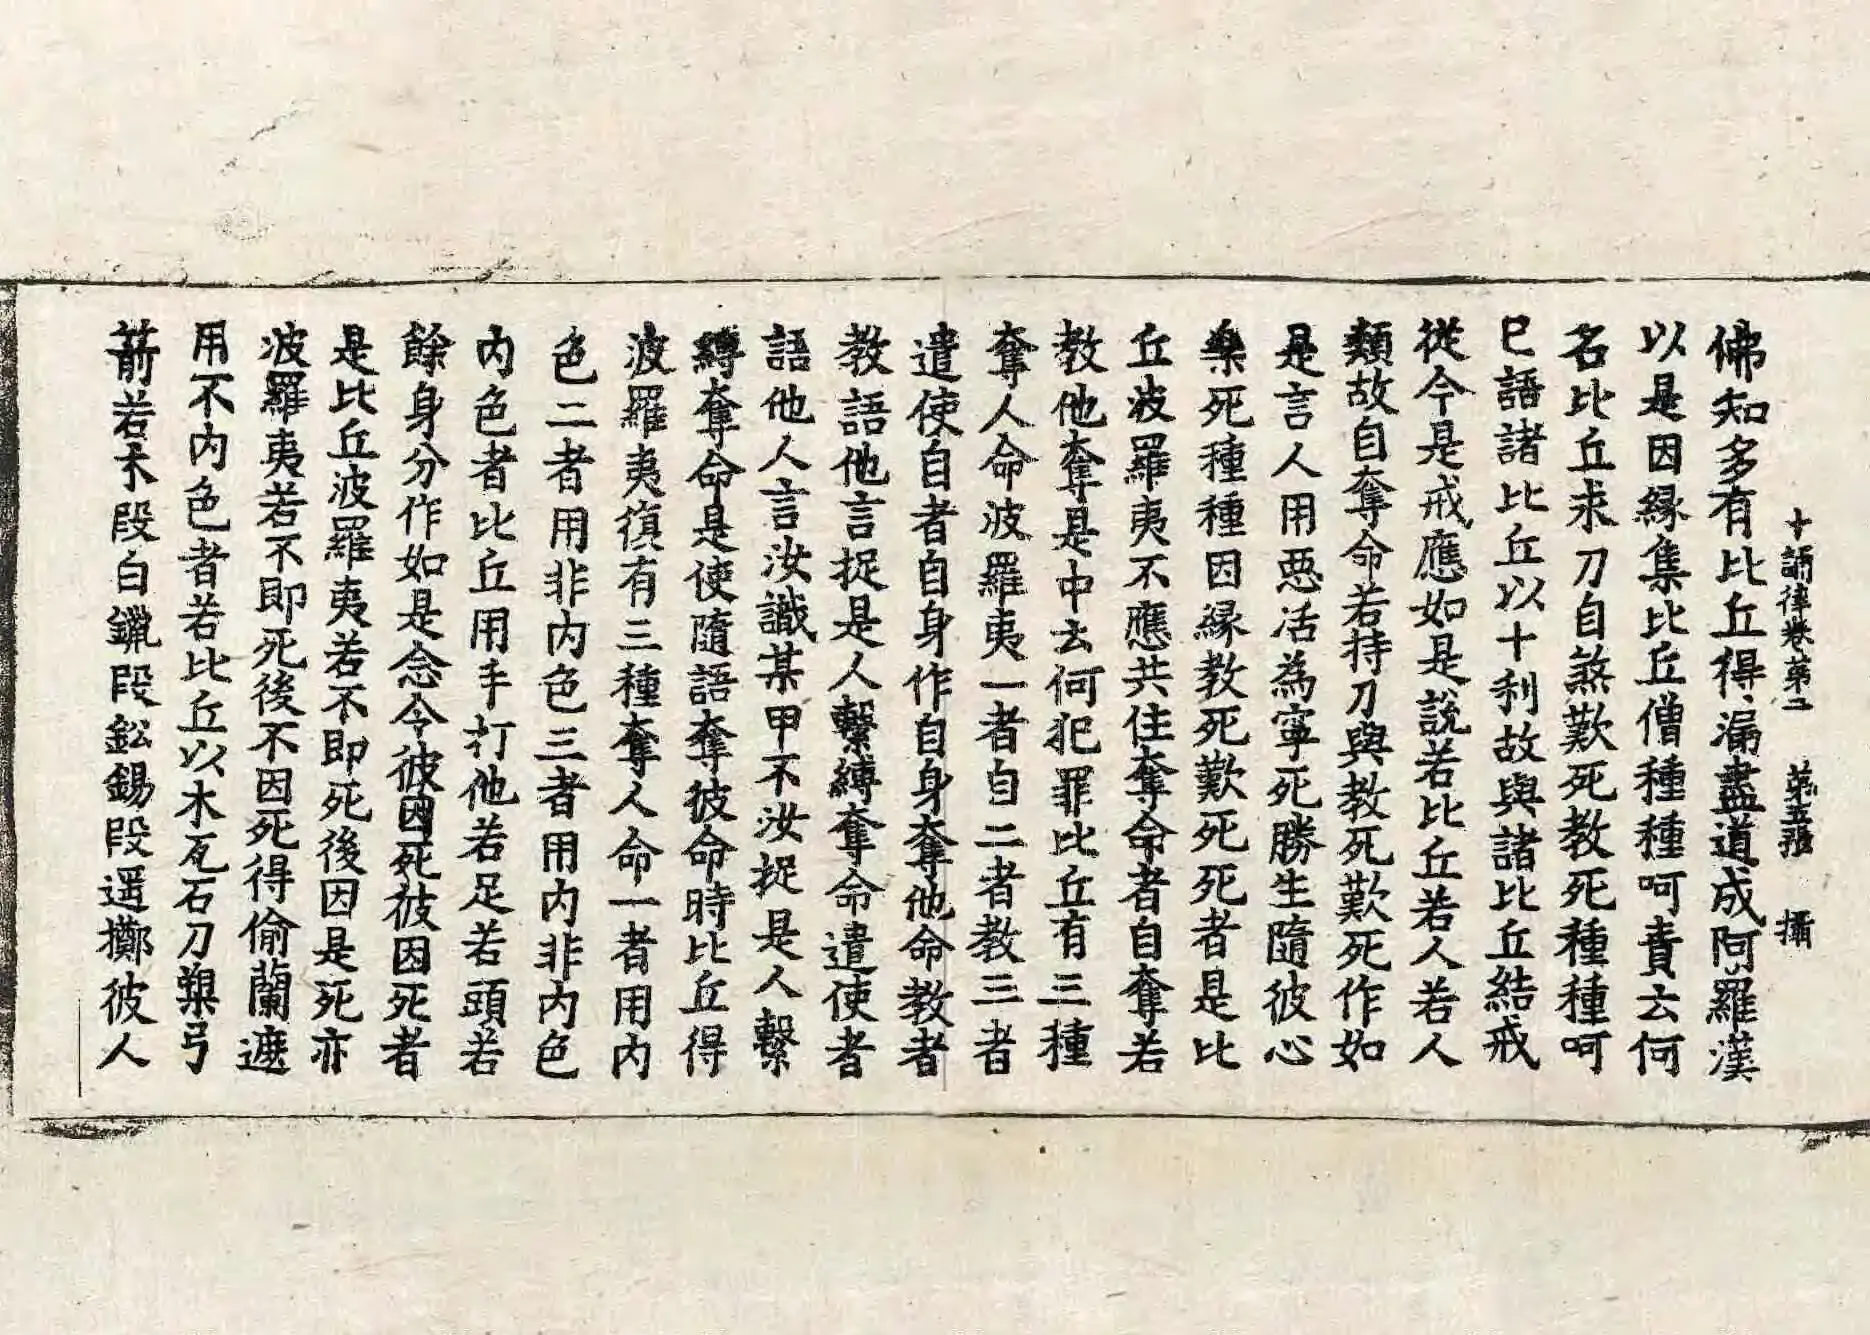 十誦律卷第二　第五張　攝
佛知多有比丘得漏盡道成阿羅漢
以是因緣集比丘僧種種呵責云何
名比丘求刀自煞歎死教死種種呵
已語諸比丘以十利故與諸比丘結戒
從今是戒應如是說若比丘若人若人
類故自奪命若持刀與教死歎死作如
是言人用惡活為寧死勝生隨彼心
樂死種種因緣教死歎死死者是比
丘波羅夷不應共住奪命者自奪若
教他奪是中云何犯罪比丘有三種
奪人命波羅夷一者自二者教三者
遣使自者自身作自身奪他命教者
教語他言捉是人繫縛奪命遣使者
語他人言汝識某甲不汝捉是人繫
縛奪命是使隨語奪彼命時比丘得
波羅夷復有三種奪人命一者用内
色二者用非内色三者用内非内色
内色者比丘用手打他若足若頭若
餘身分作如是念令彼因死彼因死者
是比丘波羅夷若不即死後因是死亦
波羅夷若不即死後不因死得偷蘭遮
用不内色者若比丘以木瓦石刀槊弓
箭若木段白鑞段鈆錫段遥擲彼人